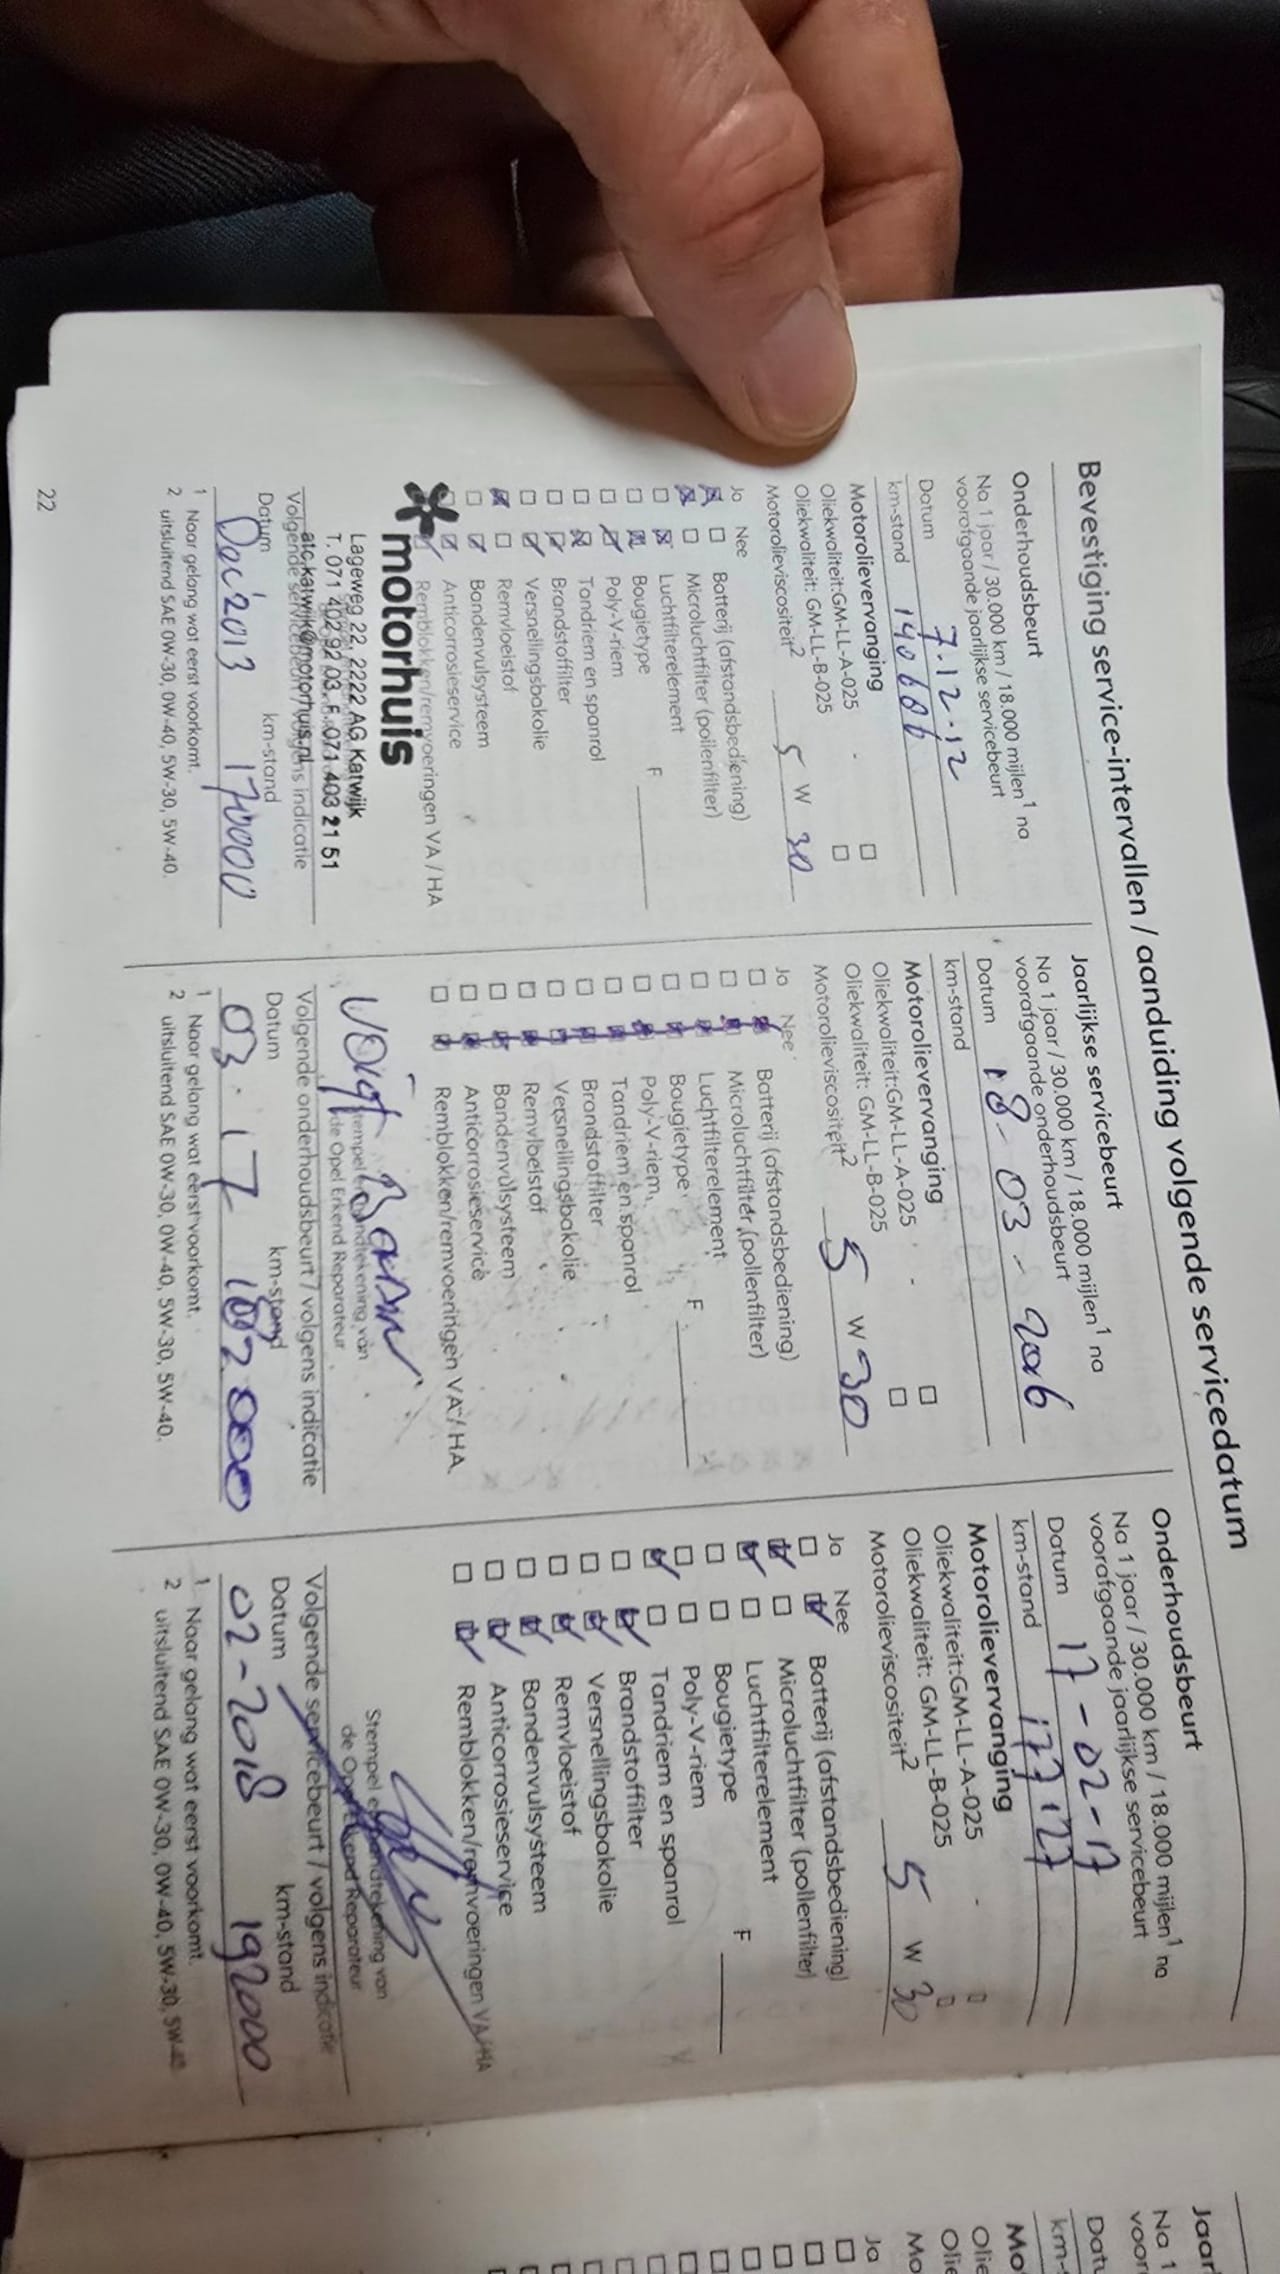 Bevestiging service-intervallen / aanduiding volgende servicedatum
Onderhoudsbeurt
Na 1 jaar / 30.000 km / 18.000 mijlen¹ na
voorafgaande jaarlijkse servicebeurt
Datum 7.12.12
km-stand 140686
Motorolievervanging
Oliekwaliteit:GM-LL-A-025 - ☐
Oliekwaliteit: GM-LL-B-025 ☐
Motorolieviscositeit² 5 W 30
Ja Nee
☒ ☐ Batterij (afstandsbediening)
☒ ☐ Microluchtfilter (pollenfilter)
☐ ☒ Luchtfilterelement
☐ ☒ Bougietype F
☐ ☒ Poly-V-riem
☐ ☒ Tandriem en spanrol
☐ ☒ Brandstoffilter
☐ ☒ Versnellingsbakolie
☒ ☐ Remvloeistof
☐ ☒ Bandenvulsysteem
☐ ☒ Anticorrosieservice
Remblokken/remvoeringen VA / HA
motorhuis
Lageweg 22, 2222 AG Katwijk
T. 071 402 92 03. F. 071 403 21 51
atc.katwijk@motorhuis.nl
Volgende servicebeurt / volgens indicatie
Datum km-stand
Dec'2013 170000
1 Naar gelang wat eerst voorkomt.
2 uitsluitend SAE 0W-30, 0W-40, 5W-30, 5W-40.
22
Jaarlijkse servicebeurt
Na 1 jaar / 30.000 km / 18.000 mijlen¹ na
voorafgaande onderhoudsbeurt
Datum 18-03-2016
km-stand
Motorolievervanging
Oliekwaliteit:GM-LL-A-025 - ☐
Oliekwaliteit: GM-LL-B-025 ☐
Motorolieviscositeit² 5 W 30
Ja Nee
☐ ☒ Batterij (afstandsbediening)
☐ ☒ Microluchtfilter (pollenfilter)
☐ ☒ Luchtfilterelement
☐ ☒ Bougietype F
☐ ☒ Poly-V-riem
☐ ☒ Tandriem en spanrol
☐ ☒ Brandstoffilter
☐ ☒ Versnellingsbakolie
☐ ☒ Remvloeistof
☐ ☒ Bandenvulsysteem
☐ ☒ Anticorrosieservice
☐ ☒ Remblokken/remvoeringen VA / HA
de Opel Erkend Reparateur
Volgende onderhoudsbeurt / volgens indicatie
Datum km-stand
03.17 182000
1 Naar gelang wat eerst voorkomt.
2 uitsluitend SAE 0W-30, 0W-40, 5W-30, 5W-40.
Onderhoudsbeurt
Na 1 jaar / 30.000 km / 18.000 mijlen¹ na
voorafgaande jaarlijkse servicebeurt
Datum 17-02-17
km-stand 177127
Motorolievervanging
Oliekwaliteit:GM-LL-A-025 - ☐
Oliekwaliteit: GM-LL-B-025 ☐
Motorolieviscositeit² 5 W 30
Ja Nee
☐ ☒ Batterij (afstandsbediening)
☒ ☐ Microluchtfilter (pollenfilter)
☒ ☐ Luchtfilterelement
☐ ☐ Bougietype F
☐ ☐ Poly-V-riem
☒ ☐ Tandriem en spanrol
☐ ☒ Brandstoffilter
☐ ☒ Versnellingsbakolie
☐ ☒ Remvloeistof
☐ ☒ Bandenvulsysteem
☐ ☒ Anticorrosieservice
☐ ☒ Remblokken/remvoeringen VA / HA
Stempel en handtekening van
de Opel Erkend Reparateur
Volgende servicebeurt / volgens indicatie
Datum km-stand
02-2018 192000
1 Naar gelang wat eerst voorkomt.
2 uitsluitend SAE 0W-30, 0W-40, 5W-30, 5W-40
Jaar
Na 1
voor
Datu
km-
Mo
Olie
Olie
Mo
Ja